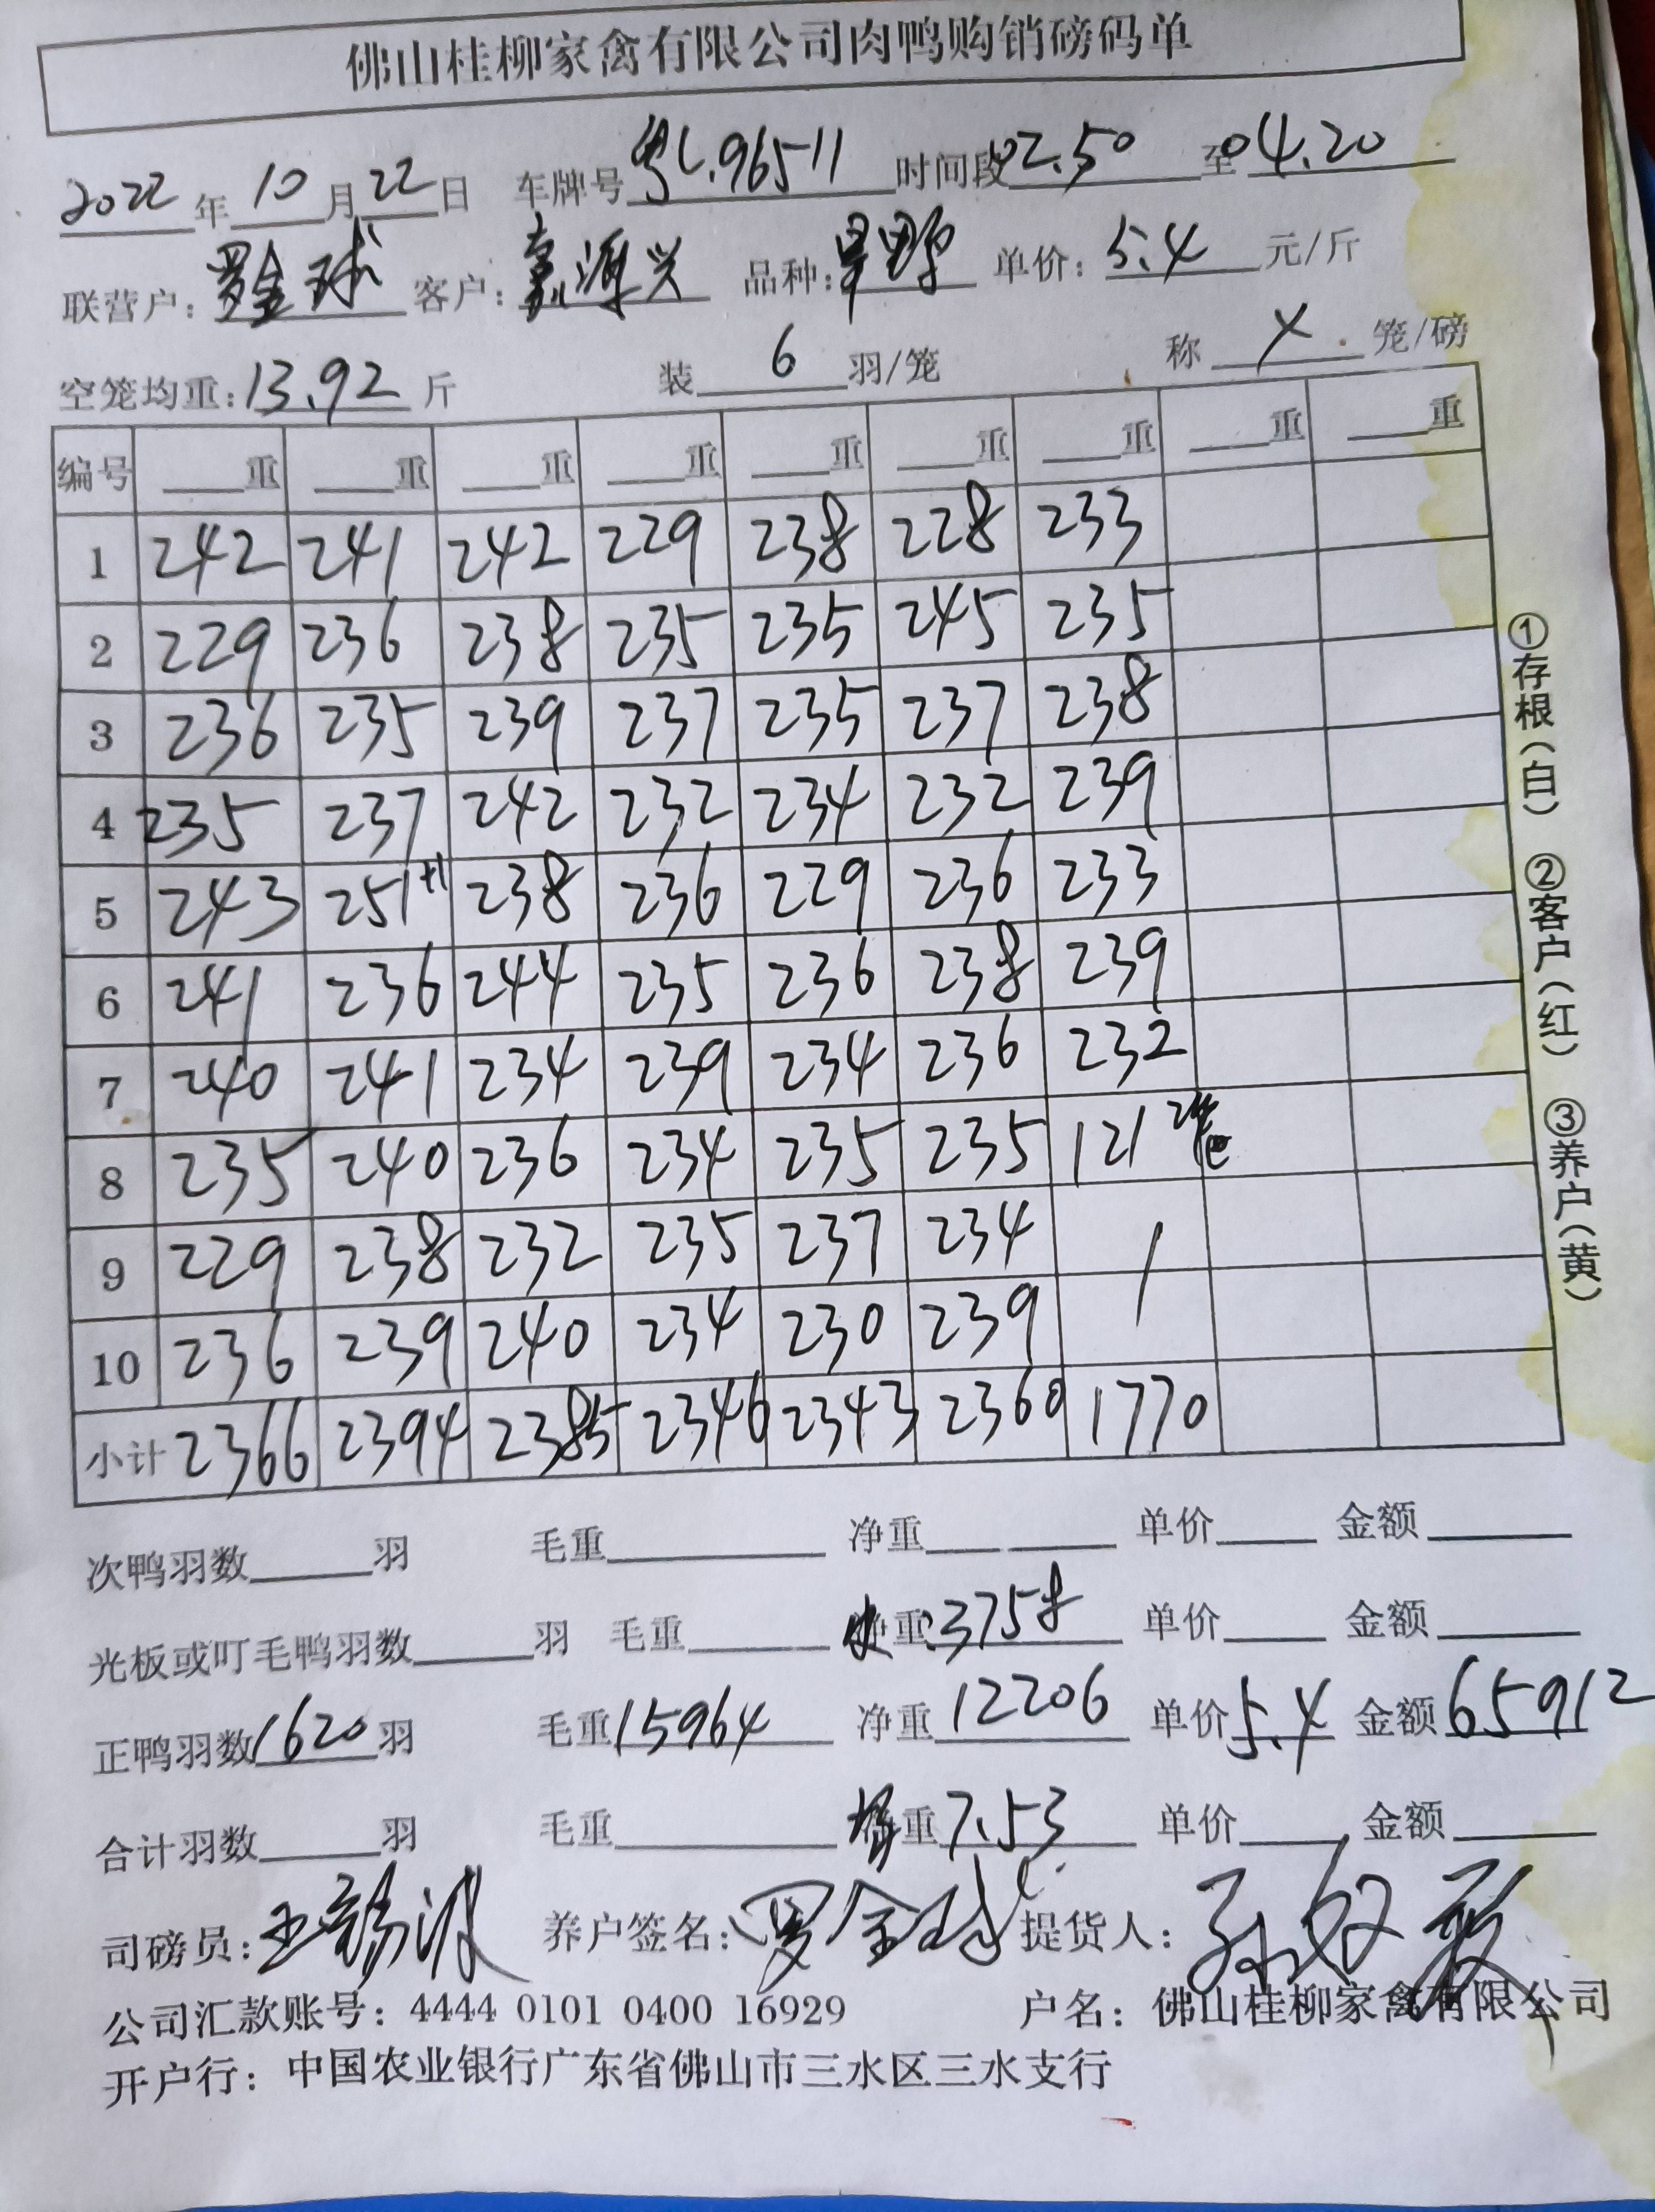 佛山桂柳家禽有限公司肉鸭购销磅码单
2022年10月22日 车牌号粤L.96511 时间段02.50至04.20
联营户：罗金球 客户：源兴 品种： 单价：5.4元/斤
空笼均重：13.92斤 装6羽/笼 称4笼/磅
编号 重 重 重 重 重 重 重 重 重
1 242 241 242 229 238 228 233
2 229 236 238 235 235 245 235
3 236 235 239 237 235 237 238
4 235 237 242 232 234 232 239
5 243 251+1 238 236 229 236 233
6 241 236 244 235 236 238 239
7 240 241 234 239 234 236 232
8 235 240 236 234 235 235 121 2笼
9 229 238 232 235 237 234
10 236 239 240 234 230 239
小计 2366 2394 2385 2346 2343 2360 1770
次鸭羽数 羽 毛重 净重 单价 金额
光板或叮毛鸭羽数 羽 毛重 重:3758 单价 金额
正鸭羽数1620羽 毛重15964 净重12206 单价5.4 金额65912
合计羽数 羽 毛重 重7.53 单价 金额
司磅员：王 波 养户签名：罗金球 提货人：
公司汇款账号：4444 0101 0400 16929 户名：佛山桂柳家禽有限公司
开户行：中国农业银行广东省佛山市三水区三水支行
①存根（白） ②客户（红） ③养户（黄）